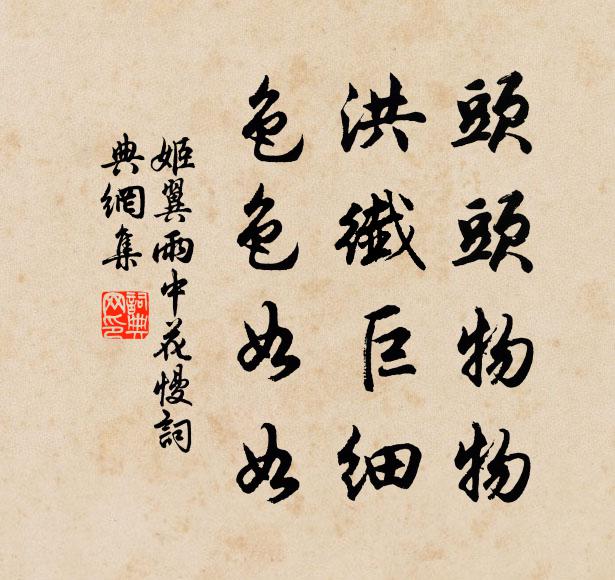 頭頭物物
洪纖巨細
色色如如
姬翼雨中花慢詞
典網集
詞典網印